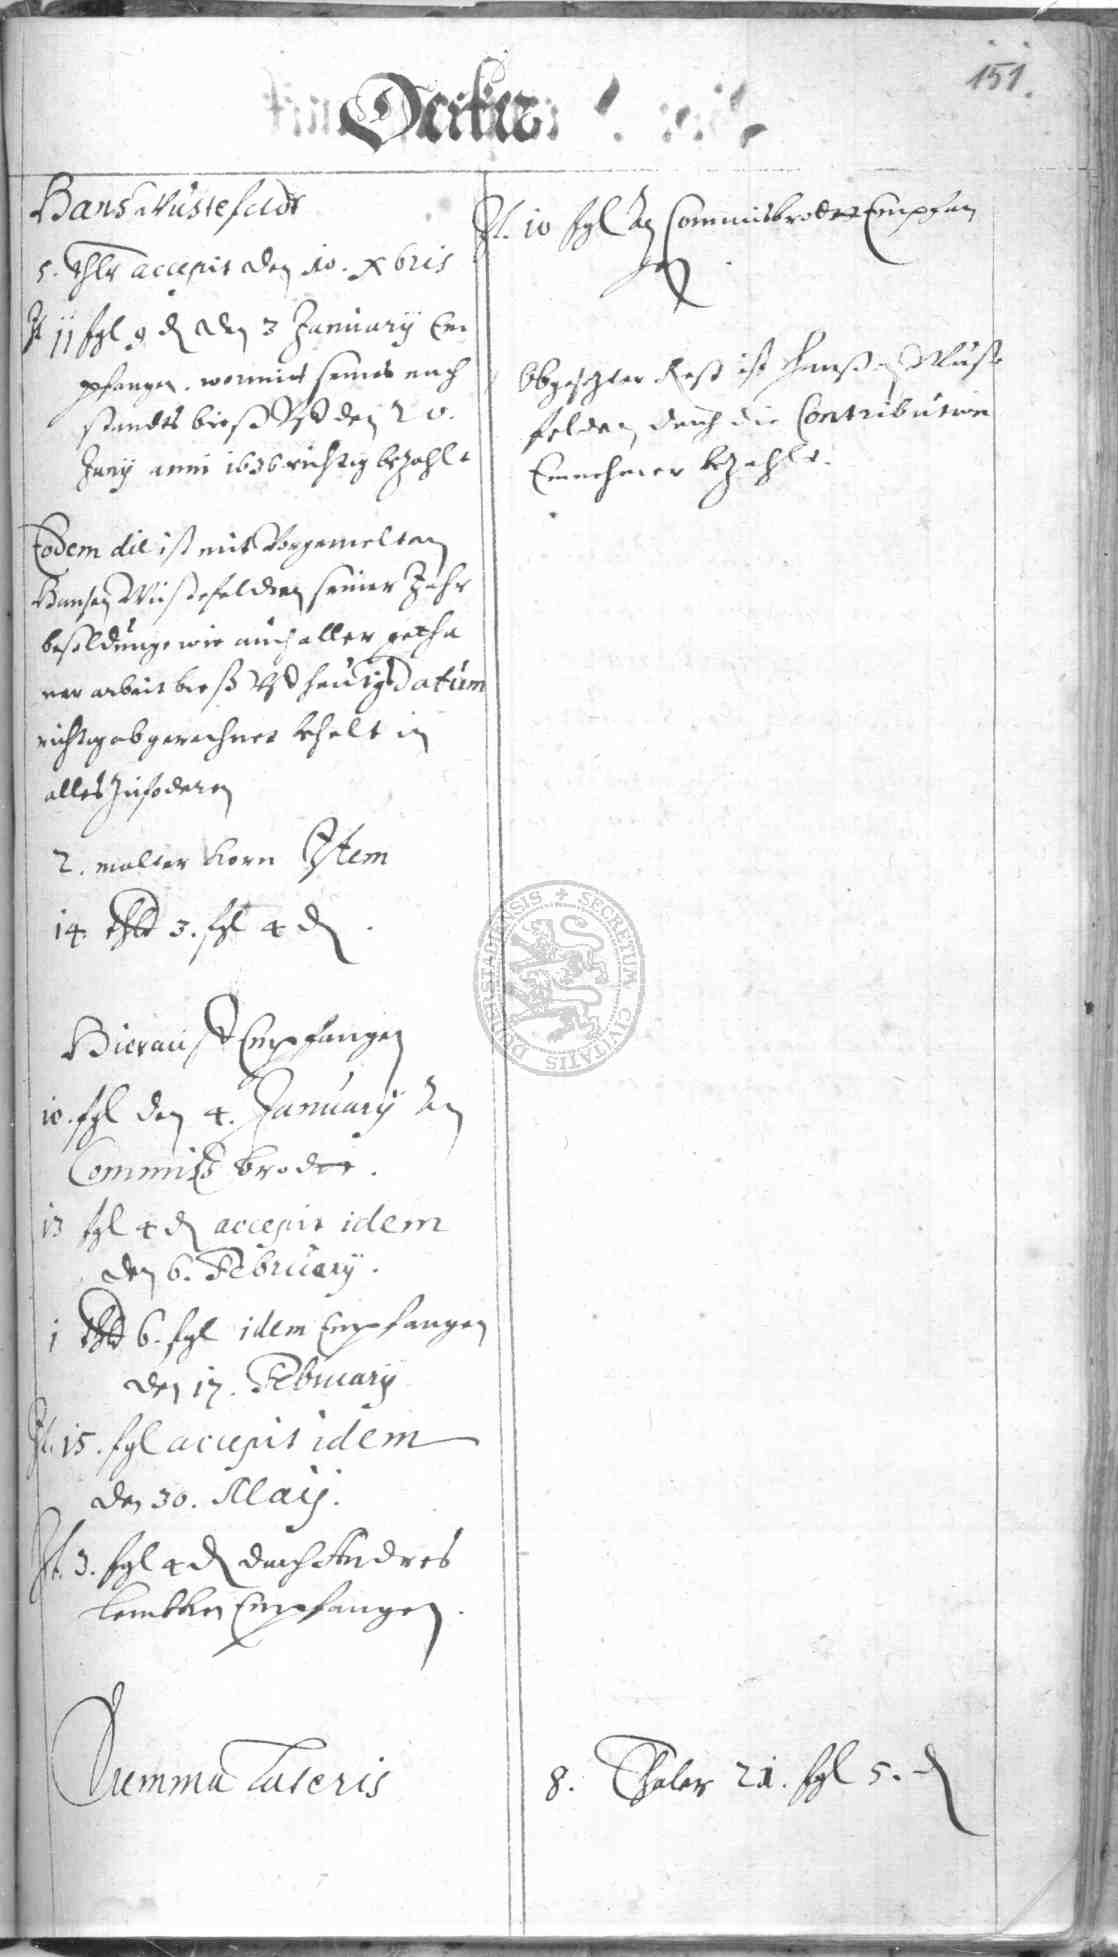 151.
Decker
Hans Wüstefeldt
5. thlr accepit den 10. Xbris
It 11 fgl 9 ₰ den 3 January Em
pfangen. wormit seines nach
standes bieß vf den 20.
Juny anni 1636 richtig bezahlt
Eodem die ist mit vorgemelten
Hansen Wüstefelden seiner Jahr
besoldunge wie auch aller getha
ner arbeit bieß vf heutig Datum
richtig abgerechnet behelt in
alles zufoderen
2. malter korn Item
14 thlr 3. fgl 4 ₰.
Hierauf Empfangen
10. fgl den 4. January an
Commiß brodte.
13 fgl 4 ₰ accepit idem
den 6. February.
1 thlr 6. fgl idem Empfangen
den 17. February
It. 15. fgl accepit idem
den 30. Maij.
It. 3. fgl 4 ₰ durch Andres
Lembken Empfangen.
Summa Lateris
It. 10 fgl an Commisbrodt Empfan
gen.
Obgesetzter Rest ist Hanßen Wüste
felden durch die Contribution
Einnehmer bezahlt.
8. Thaler 21. fgl 5. ₰
SECRETUM CIVITATIS DUDERSTADENSIS